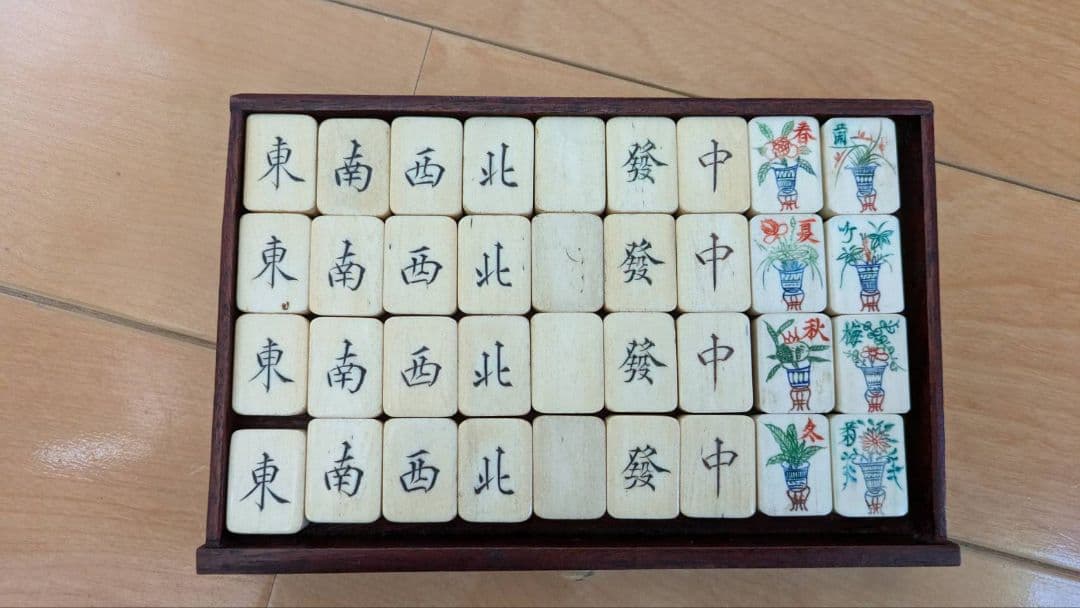 東 南 西 北 發 中 春 蘭
東 南 西 北 發 中 夏 竹
東 南 西 北 發 中 秋 梅
東 南 西 北 發 中 冬 菊